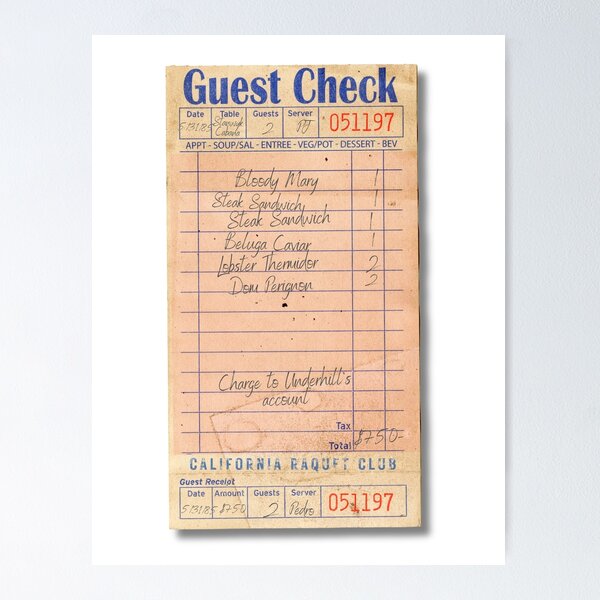 Guest Check
Date Table Guests Server 051197
5/31/85 Stanwyk Cabana 2 PJ
APPT - SOUP/SAL - ENTREE - VEG/POT - DESSERT - BEV
Bloody Mary 1
Steak Sandwich 1
Steak Sandwich 1
Beluga Caviar 1
Lobster Thermidor 2
Dom Perignon 2
Charge to Underhill's
account
Tax
Total $750-
CALIFORNIA RAQUET CLUB
Guest Receipt
Date Amount Guests Server 051197
5/31/85 $750 2 Pedro